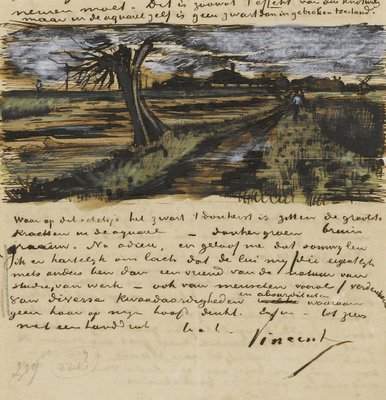 nemen moet. Dit is zoowat 't effekt van den knotwilg
maar in de aquarel zelf is geen zwart dan in gebroken toestand.
Waar op dit schetsje het zwart 't donkerst is zitten de grootste
krachten in de aquarel – donkergroen bruin
graauw. Nu adieu, en geloof me dat somwijlen
ik er hartelijk om lach dat de lui mij die eigenlijk
niets anders ben dan een vriend van de natuur van
studie, van werk – ook van menschen vooral / verdenken
van diverse kwaadaardigheden en absurditeiten waaraan
geen haar op mijn hoofd denkt. Enfin – tot ziens
met een handdruk t. à t.
Vincent